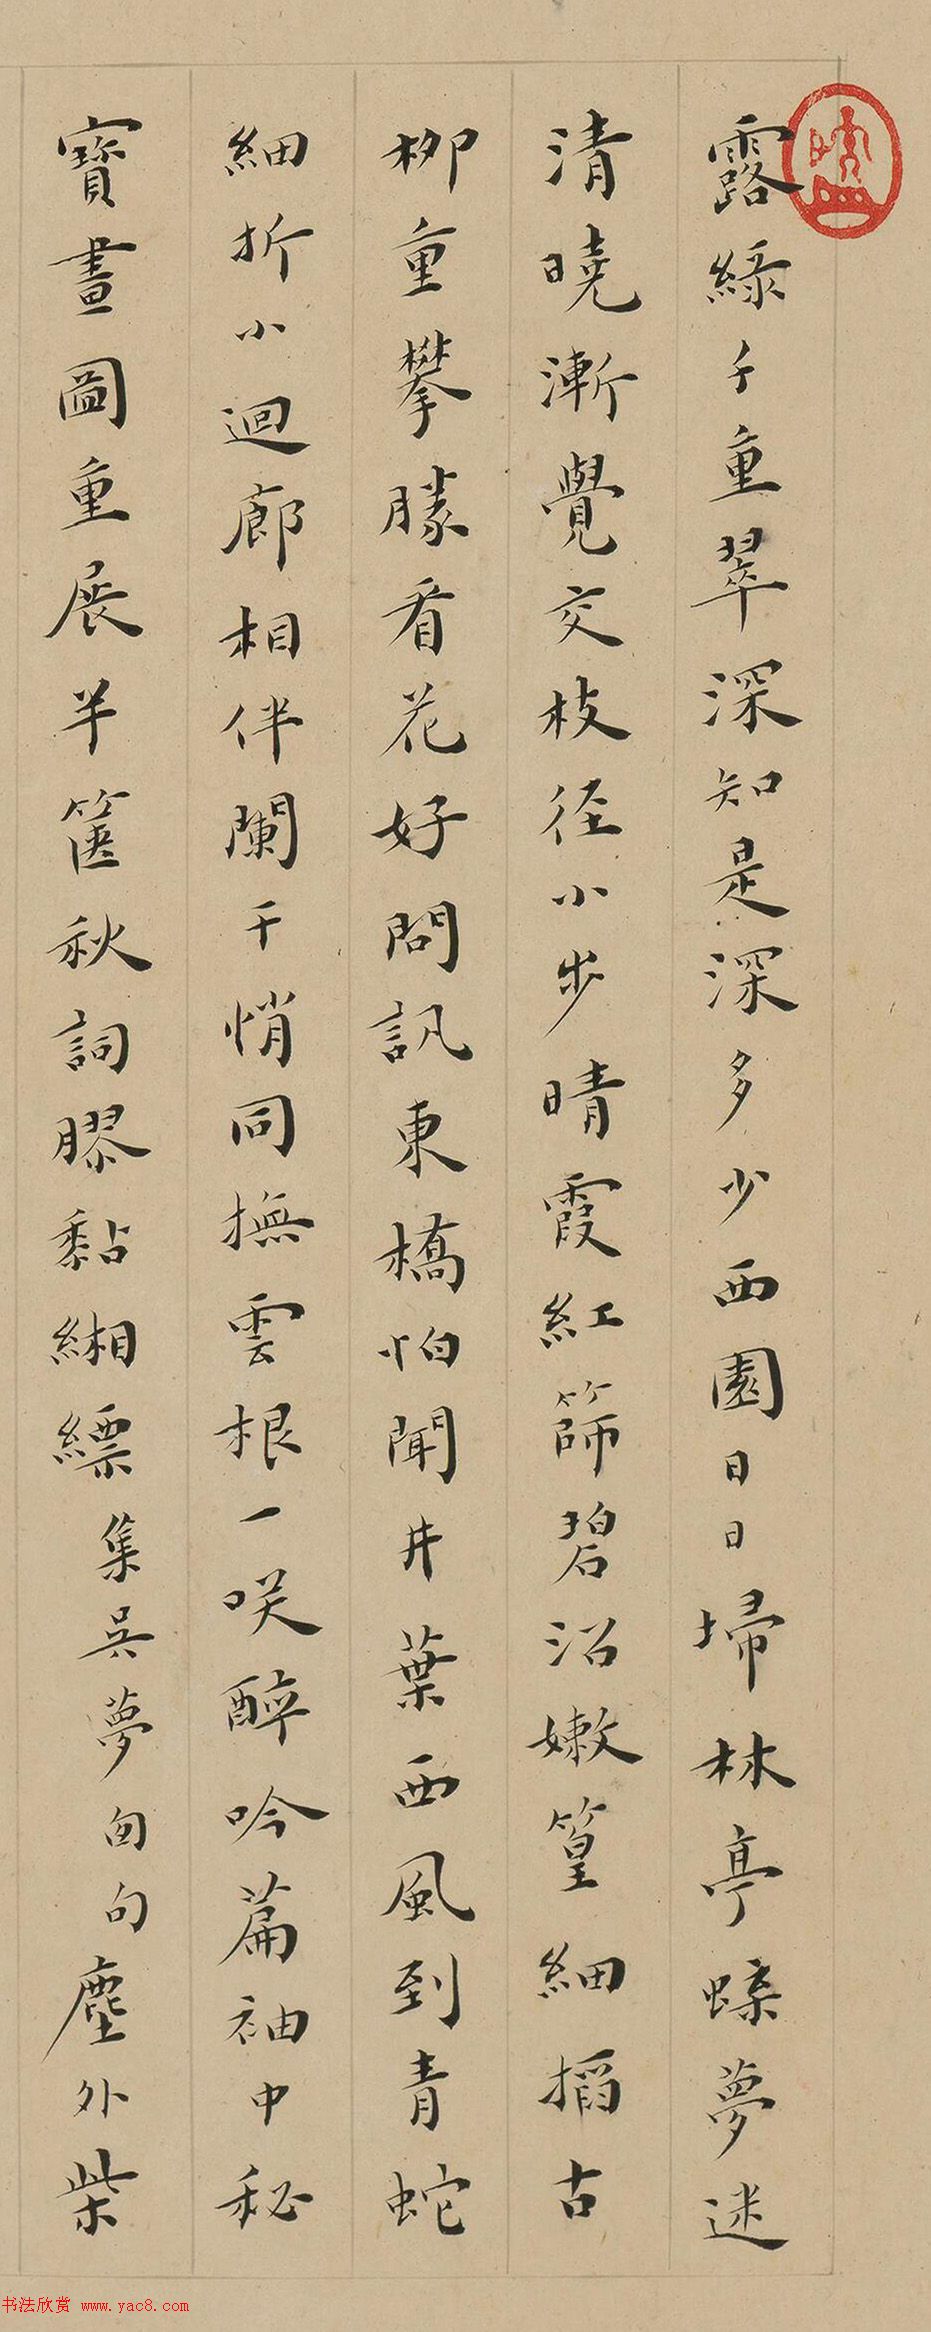 露綠千重翠深知是深多少西園日日埽林亭蝶夢迷
清曉漸覺交枝徑小步晴霞紅篩碧沼嫩篁細搯古
柳重攀勝看花好問訊東橋怕聞井葉西風到青蛇
細折小迴廊相伴闌干悄同撫雲根一咲醉吟篇袖中秘
寶畫圖重展半篋秋詞膠黏緗縹集吳夢窗句塵外柴
书法欣赏 www.yac8.com